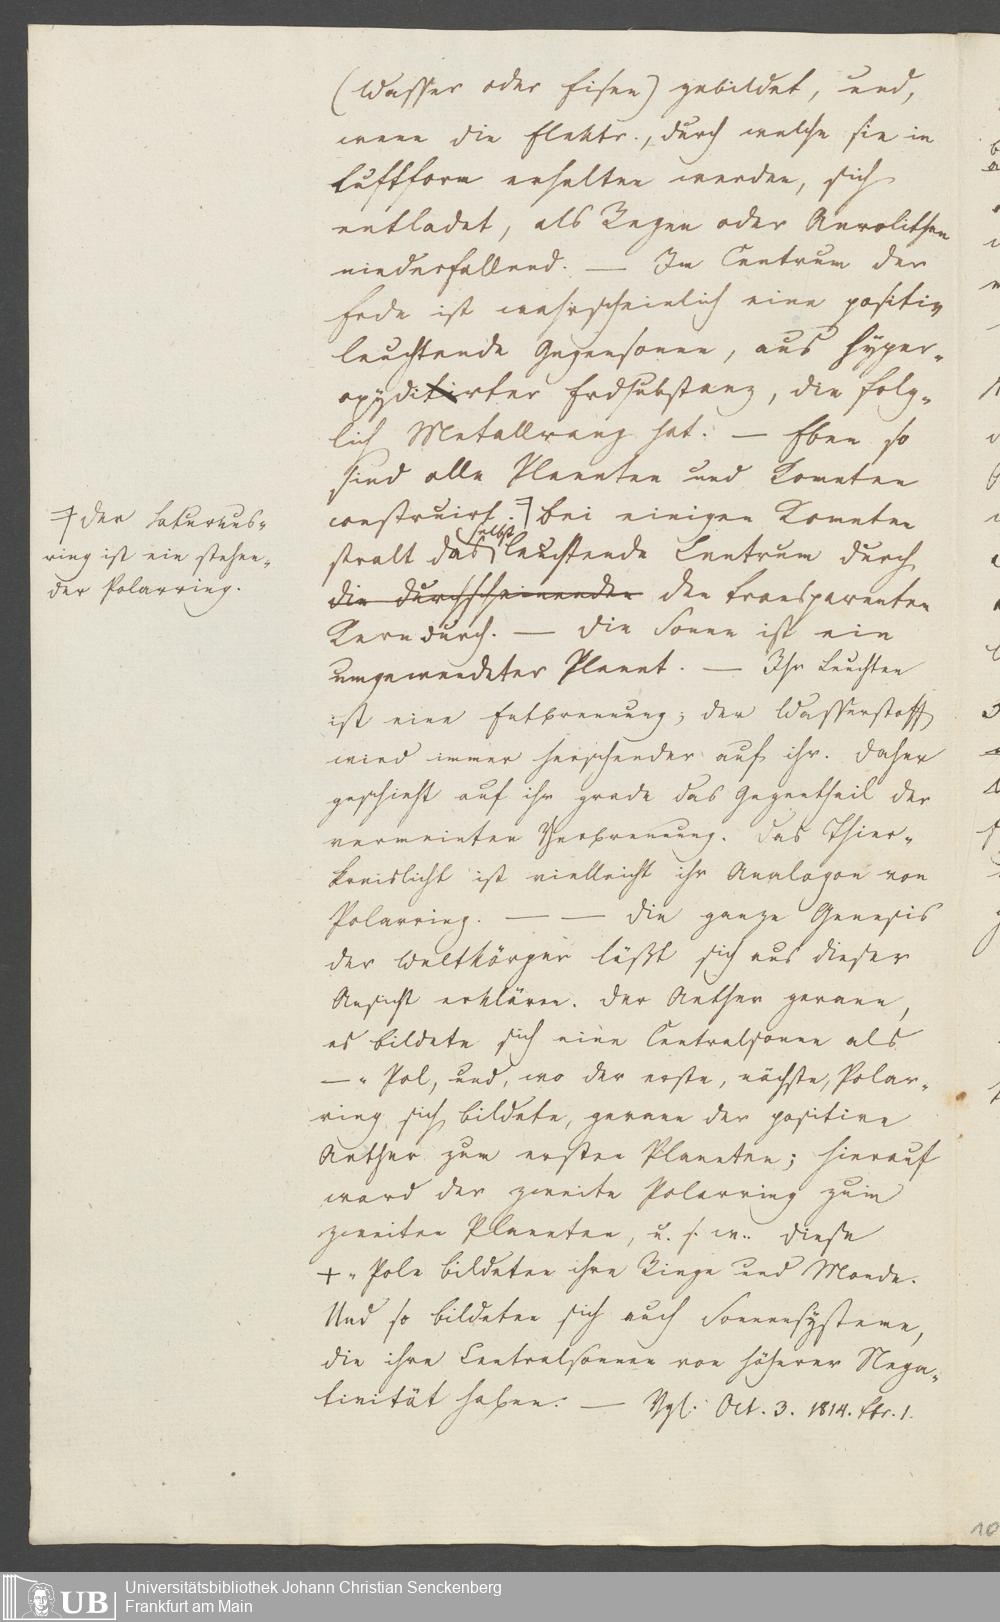 (Wasser oder Eisen) gebildet, und,
wenn die Elektr., durch welche sie in
Luftform erhalten werden, sich
entladet, als Regen oder Aerolithen
niederfallend. — Im Centrum der
Erde ist wahrscheinlich eine positiv
leuchtende Gegensonne, aus hyper-
oxydirter Erdsubstanz, die folg-
lich Metallrang hat. — Eben so
sind alle Planeten und Kometen
construirt. bei einigen Kometen
stralt das selbst leuchtende Centrum durch
die durchscheinenden den transparenten
Kern durch. — Die Sonne ist ein
umgewendeter Planet. — Ihr Leuchten
ist eine Entbrennung; der Wasserstoff
wird immer herschender auf ihr. Daher
geschieht auf ihr grade das Gegentheil der
vermeinten Verbrennung. Das Thier-
kreislicht ist vielleicht ihr Analogon von
Polarring. — — Die ganze Genesis
der Weltkörper läßt sich aus dieser
Ansicht erklären. Der Aether gerann,
es bildete sich eine Centralsonne als
— - Pol, und, wo der erste, nächste, Polar-
ring sich bildete, gerann der positive
Aether zum ersten Planeten; hierauf
ward der zweite Polarring zum
zweiten Planeten, u. s. w.. Diese
+ - Pole bildeten ihre Ringe und Monde.
Und so bildeten sich auch Sonnensysteme,
die ihre Centralsonnen von höherer Nega-
tivität haben. — Vgl. Oct. 3. 1814. Ltr. 1.
Der Saturnus-
ring ist ein stehen-
der Polarring.
10
UB
Universitätsbibliothek Johann Christian Senckenberg
Frankfurt am Main